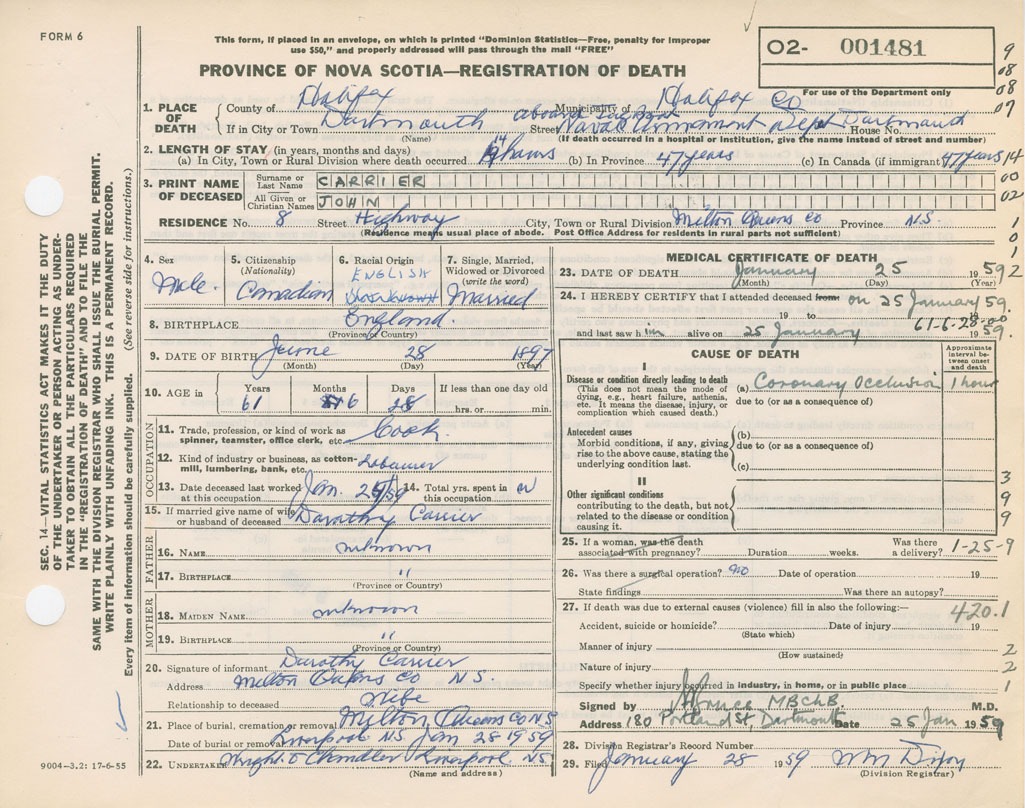 FORM 6
This form, if placed in an envelope, on which is printed "Dominion Statistics—Free, penalty for improper
use $50," and properly addressed will pass through the mail "FREE"
PROVINCE OF NOVA SCOTIA—REGISTRATION OF DEATH
O2- 001481
For use of the Department only
9
08
08
07
14
00
02
1
0
1
2
SEC. 14—VITAL STATISTICS ACT MAKES IT THE DUTY
OF THE UNDERTAKER OR PERSON ACTING AS UNDER-
TAKER TO OBTAIN ALL THE PARTICULARS REQUIRED
IN THE "REGISTRATION OF DEATH" AND TO FILE THE
SAME WITH THE DIVISION REGISTRAR WHO SHALL ISSUE THE BURIAL PERMIT.
WRITE PLAINLY WITH UNFADING INK. THIS IS A PERMANENT RECORD.
Every item of information should be carefully supplied. (See reverse side for instructions.)
1. PLACE OF DEATH
County of Halifax Municipality of Halifax Co
If in City or Town Dartmouth aboard Street Naval Armament Depot Dartmouth House No.
(Name) (If death occurred in a hospital or institution, give the name instead of street and number)
2. LENGTH OF STAY (in years, months and days)
(a) In City, Town or Rural Division where death occurred 14 hours (b) In Province 47 years (c) In Canada (if immigrant) 47 years
3. PRINT NAME OF DECEASED
Surname or Last Name CARRIER
All Given or Christian Names JOHN
RESIDENCE No. 8 Street Highway City, Town or Rural Division Milton Queens Co Province N.S.
(Residence means usual place of abode. Post Office Address for residents in rural parts not sufficient)
4. Sex
Male
5. Citizenship
(Nationality)
Canadian
6. Racial Origin
ENGLISH
7. Single, Married,
Widowed or Divorced
(write the word)
Married
8. BIRTHPLACE England
(Province or Country)
9. DATE OF BIRTH June 28 1897
(Month) (Day) (Year)
10. AGE in
Years Months Days If less than one day old
61 6 28 hrs. or min.
OCCUPATION
11. Trade, profession, or kind of work as
spinner, teamster, office clerk, etc. Cook
12. Kind of industry or business, as cotton-
mill, lumbering, bank, etc. Labourer
13. Date deceased last worked
at this occupation Jan. 25/59
14. Total yrs. spent in
this occupation
15. If married give name of wife
or husband of deceased Dorothy Carrier
FATHER
16. NAME unknown
17. BIRTHPLACE "
(Province or Country)
MOTHER
18. MAIDEN NAME unknown
19. BIRTHPLACE "
(Province or Country)
20. Signature of informant Dorothy Carrier
Address Milton Queens Co N.S.
Relationship to deceased Wife
21. Place of burial, cremation or removal Milton Queens Co N S
Date of burial or removal Liverpool N.S. Jan 28 1959
22. UNDERTAKER Wright & Chandler Liverpool NS
(Name and address)
9004-3.2: 17-6-55
MEDICAL CERTIFICATE OF DEATH
23. DATE OF DEATH January 25 1959
(Month) (Day) (Year)
24. I HEREBY CERTIFY that I attended deceased from on 25 January 59.
19 to 19
61-6-28-00
and last saw him alive on 25 January 1959.
CAUSE OF DEATH
Approximate
interval be-
tween onset
and death
Disease or condition directly leading to death
(This does not mean the mode of
dying, e.g., heart failure, asthenia,
etc. It means the disease, injury, or
complication which caused death.)
(a) Coronary Occlusion 1 hour
due to (or as a consequence of)
Antecedent causes
Morbid conditions, if any, giving
rise to the above cause, stating the
underlying condition last.
(b)
due to (or as a consequence of)
(c)
II
Other significant conditions
contributing to the death, but not
related to the disease or condition
causing it.
3
9
9
9
25. If a woman, was the death
associated with pregnancy? Duration weeks. Was there
a delivery? 1-25-9
26. Was there a surgical operation? no Date of operation 19
State findings Was there an autopsy?
27. If death was due to external causes (violence) fill in also the following:—
420.1
Accident, suicide or homicide? Date of injury 19
(State which)
Manner of injury 2
(How sustained)
Nature of injury 2
Specify whether injury occurred in industry, in home, or in public place 1
Signed by MBChB. M.D.
Address 180 Portland St, Dartmouth Date 25 Jan 1959
28. Division Registrar's Record Number
29. Filed January 28 1959 Wm Dixon
(Division Registrar)